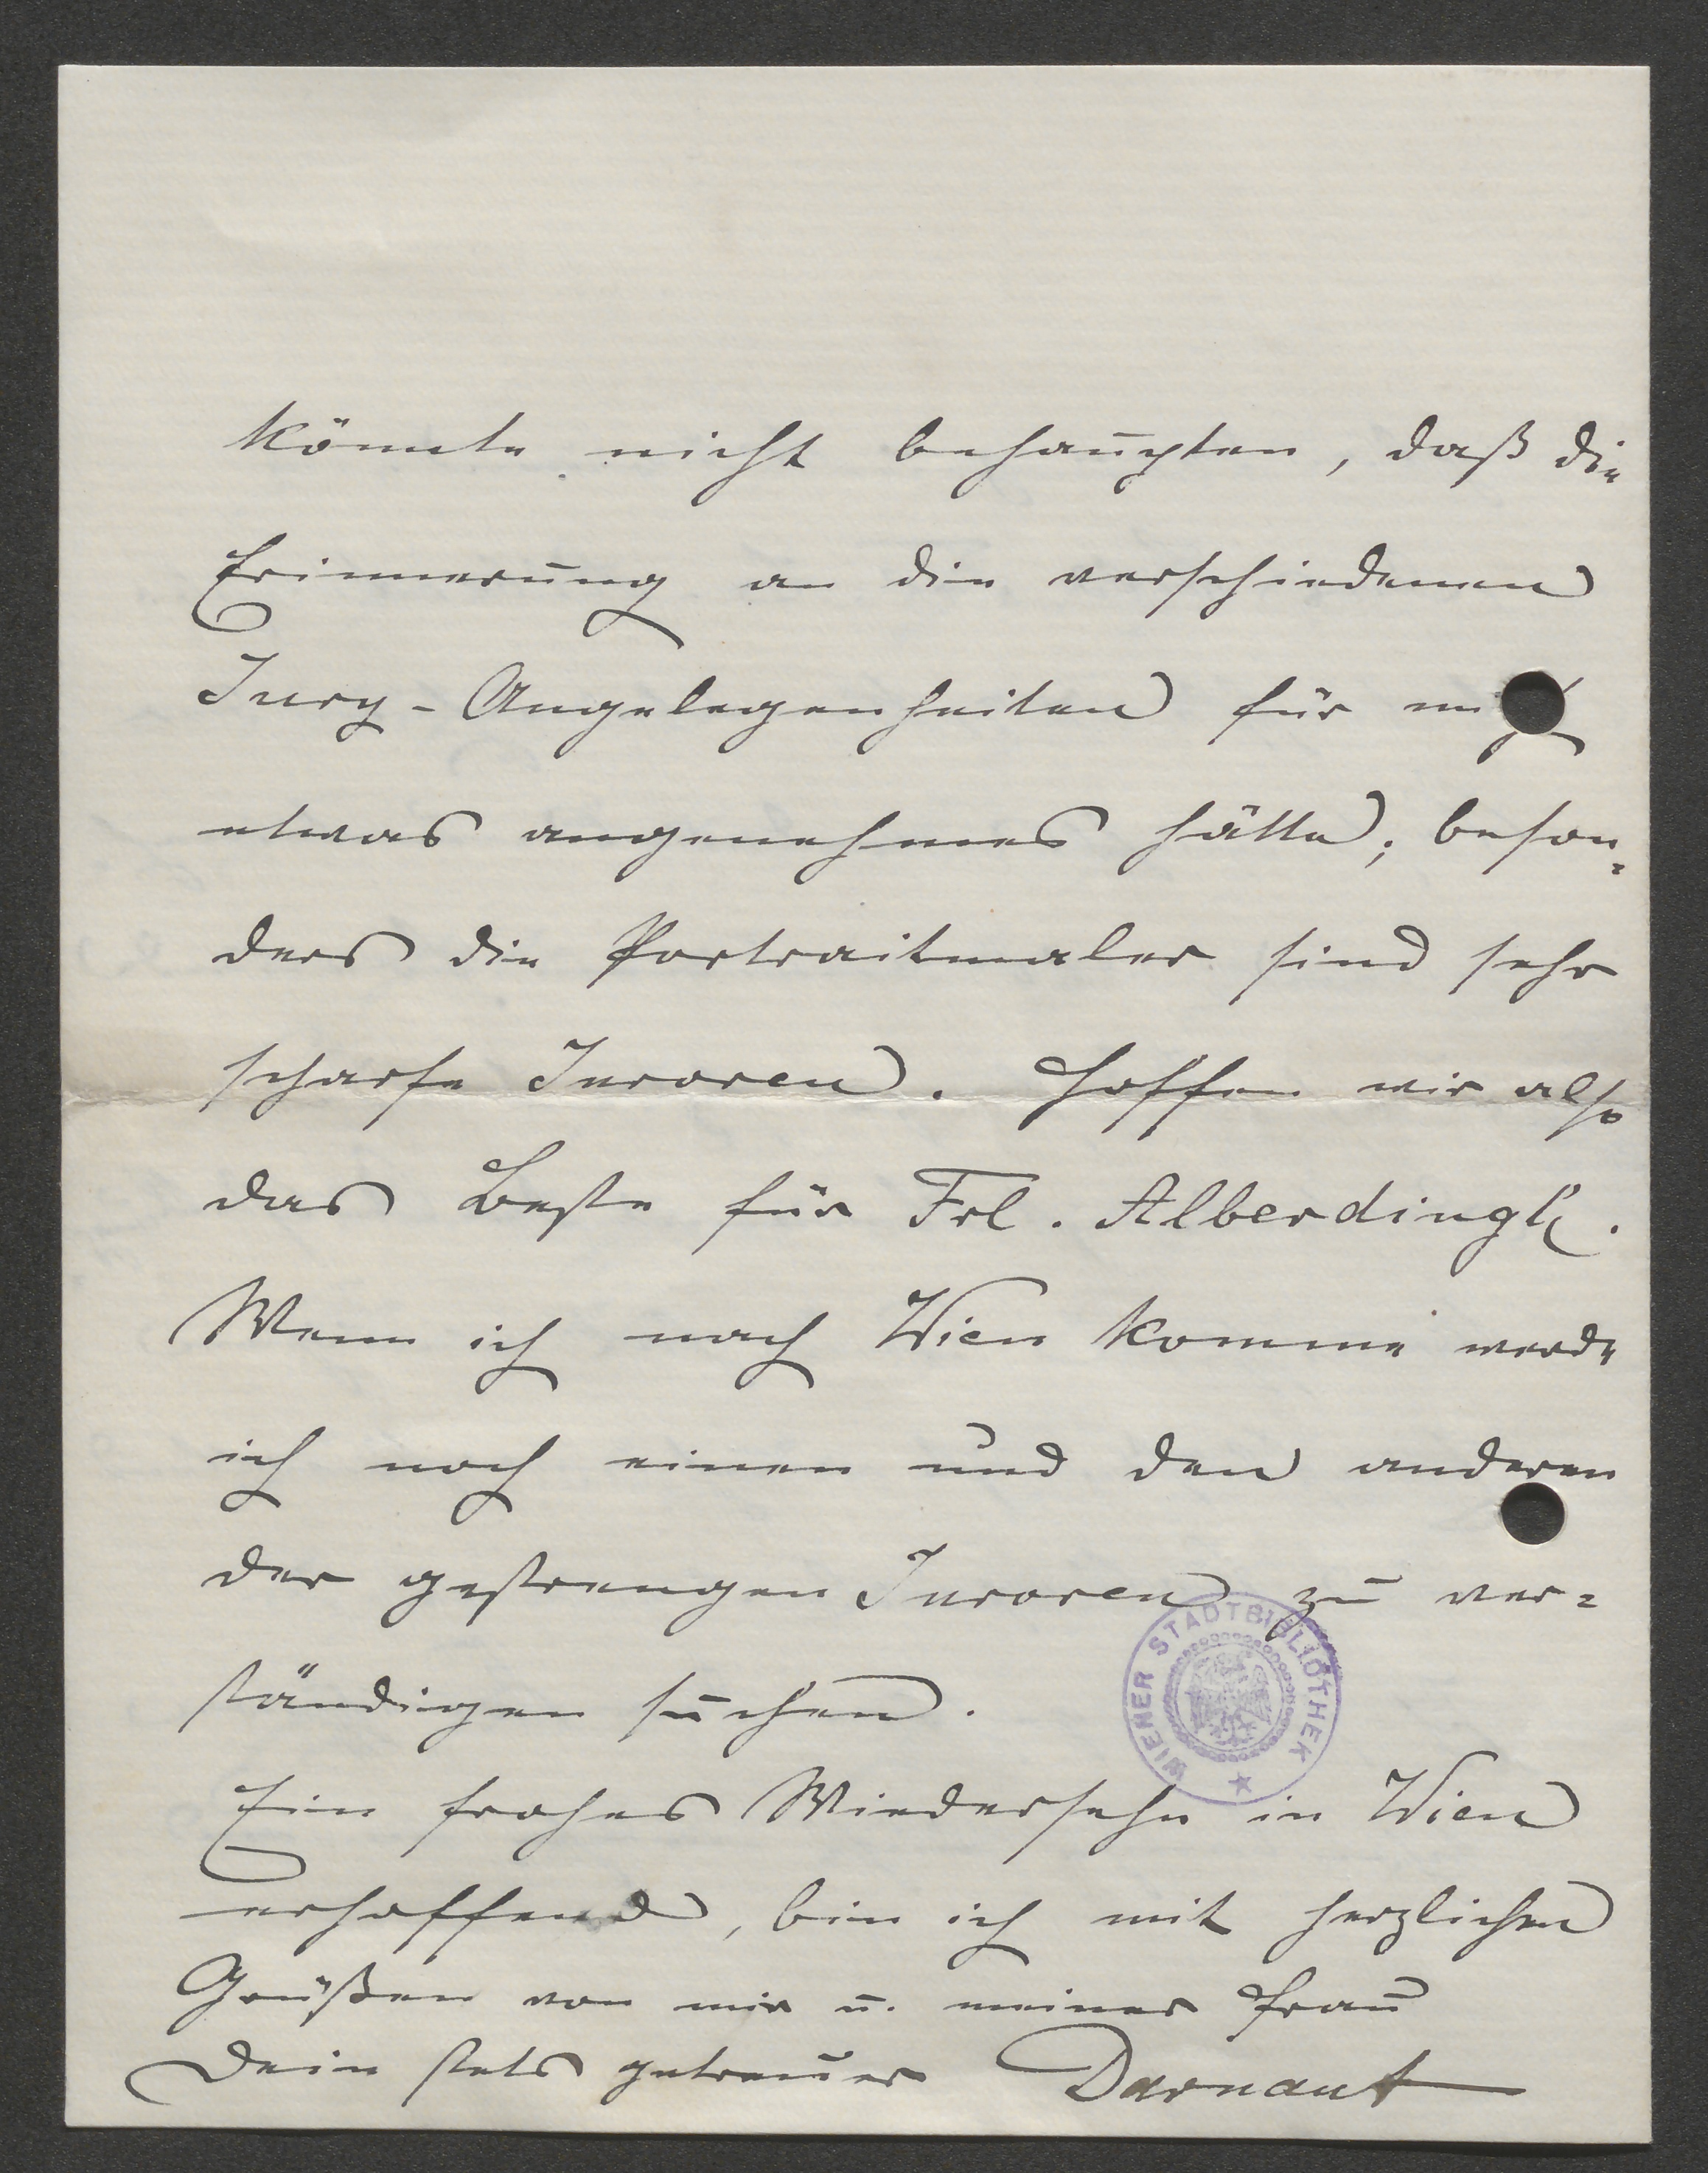 könnte nicht behaupten, daß die
Erinnerung an die verschiedenen
Jury-Angelegenheiten für mich
etwas angenehmes hätte; beson-
ders die Portraitmaler sind sehr
scharfe Juroren. Hoffen wir also
das Beste für Frl. Alberdingk.
Wenn ich nach Wien komme werde
ich noch einen und den anderen
der gestrengen Juroren zu ver-
ständigen suchen.
WIENER STADTBIBLIOTHEK
Ein frohes Wiedersehn in Wien
erhoffend, bin ich mit herzlichen
Grüßen von mir u. meiner Frau
Dein stets getreuer Darnaut